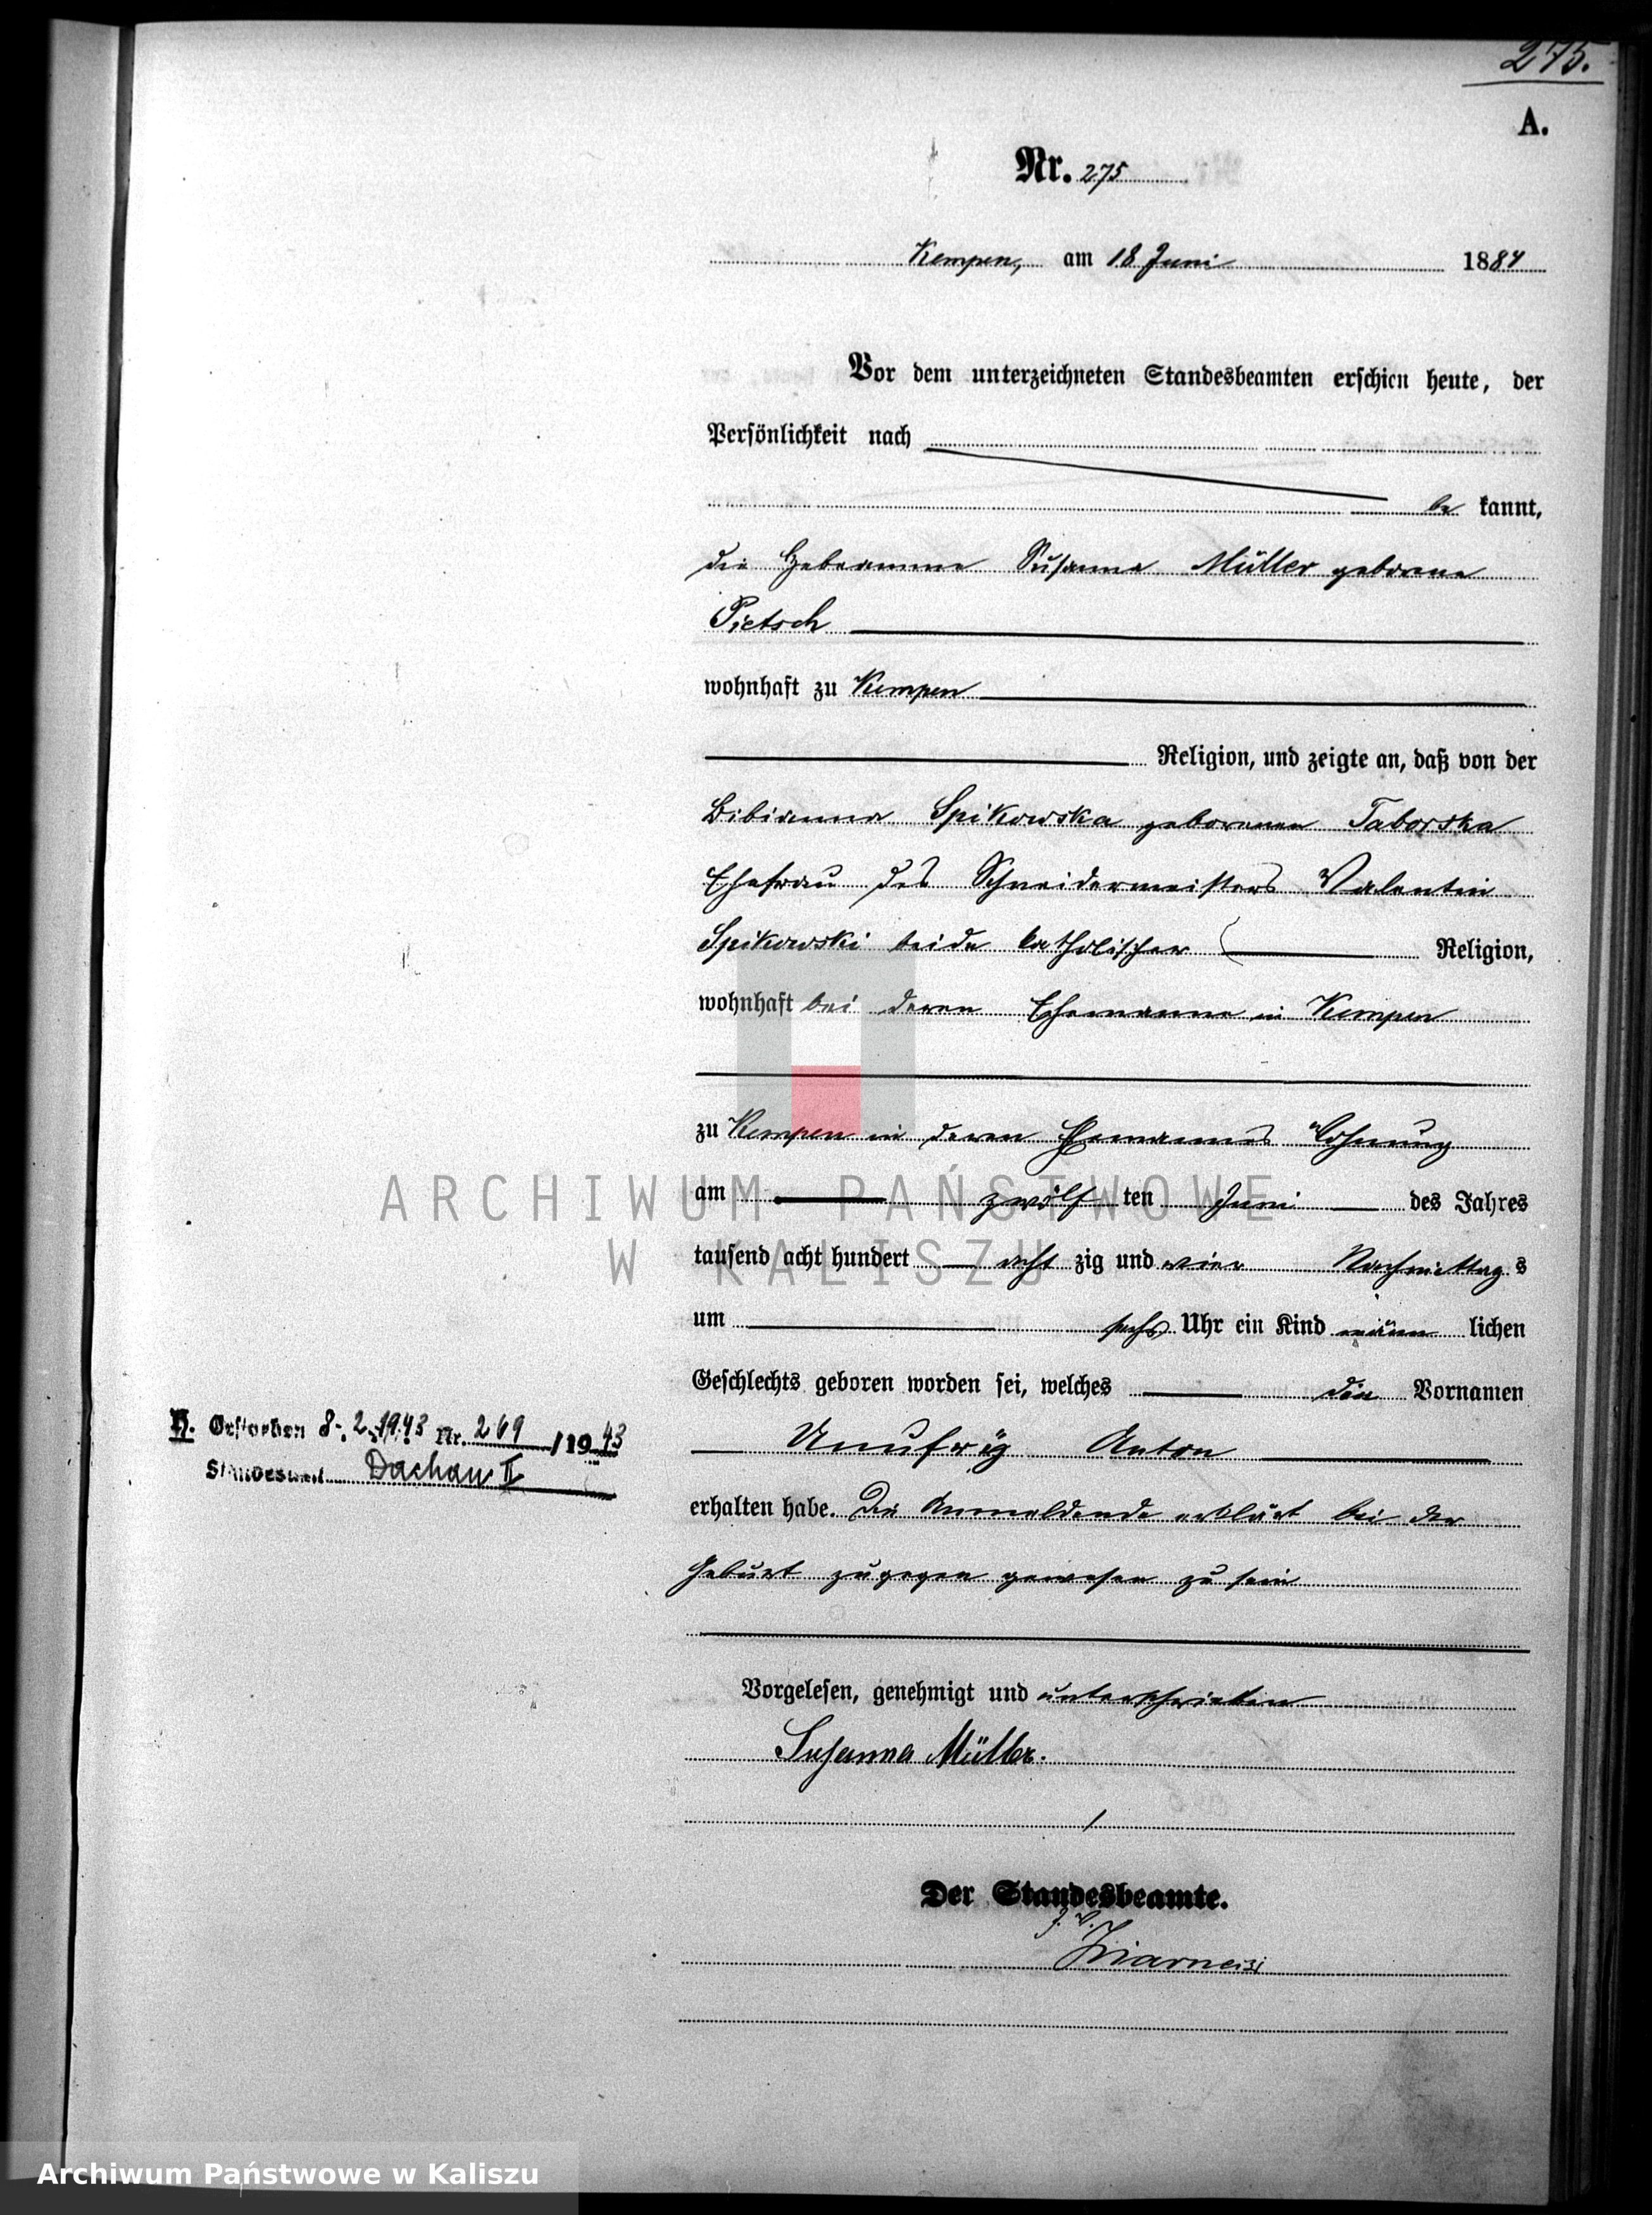 275.
A.
Nr. 275
Kempen, am 18 Juni 1884
Vor dem unterzeichneten Standesbeamten erschien heute, der
Persönlichkeit nach
be kannt,
die Hebeamme Susanna Müller geborene
Pietsch
wohnhaft zu Kempen
Religion, und zeigte an, daß von der
Bibianna Spikowska geborenen Taborska
Ehefrau des Schneidermeisters Valentin
Spikowski beide katholischer Religion,
wohnhaft bei deren Ehemanne in Kempen
zu Kempen in deren Ehemannes Wohnung
am zwölf ten Juni des Jahres
tausend acht hundert acht zig und vier Nachmittag s
um sechs Uhr ein Kind männ lichen
Geschlechts geboren worden sei, welches die Vornamen
Anton
H. Gestorben 8. 2. 1943 Nr. 269 /1943
Standesamt Dachau II
erhalten habe. Die Anmeldende erklärt bei der
Geburt zugegen gewesen zu sein
Vorgelesen, genehmigt und unterschrieben
Susanna Müller.
Der Standesbeamte.
ARCHIWUM PAŃSTWOWE
W KALISZU
Archiwum Państwowe w Kaliszu